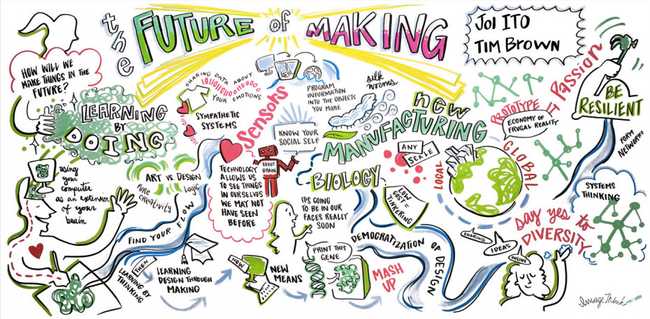 the
FUTURE of MAKING
JOI ITO
TIM BROWN
HOW WILL WE
MAKE THINGS IN THE
FUTURE?
LEARNING
BY
DOING
using
your
computer
as an extension
of your
brain.
ART vs DESIGN
pure
creativity
logic
FIND YOUR FLOW
THEN
LEARNING BY
THINKING
LEARNING
DESIGN THROUGH
MAKING
SHARING DATA ABOUT
YOUR EMOTIONS
SYMPATHETIC
SYSTEMS
Sensors
PROGRAM
INFORMATION
INTO THE OBJECTS
YOU MAKE
KNOW YOUR
SOCIAL SELF
TECHNOLOGY
ALLOWS US
TO SEE THINGS
IN OURSELVES
WE MAY NOT
HAVE SEEN
BEFORE
silk
worms
new
MANUFACTURING
ANY
SCALE
BIOLOGY
IT'S GOING
TO BE IN OUR
FACES REALLY
SOON
LOW
COST
TINKERING
NEW
MEANS
PRINT THIS
GENE
MASH
UP
DEMOCRATIZATION OF
DESIGN
LOCAL
GLOBAL
PROTOTYPE IT
ECONOMY OF
FRUGAL REALITY
Passion
BE
RESILIENT
FORM
NETWORKS
SYSTEMS
THINKING
say yes to
DIVERSITY
SHARING
IDEAS
ImageThink